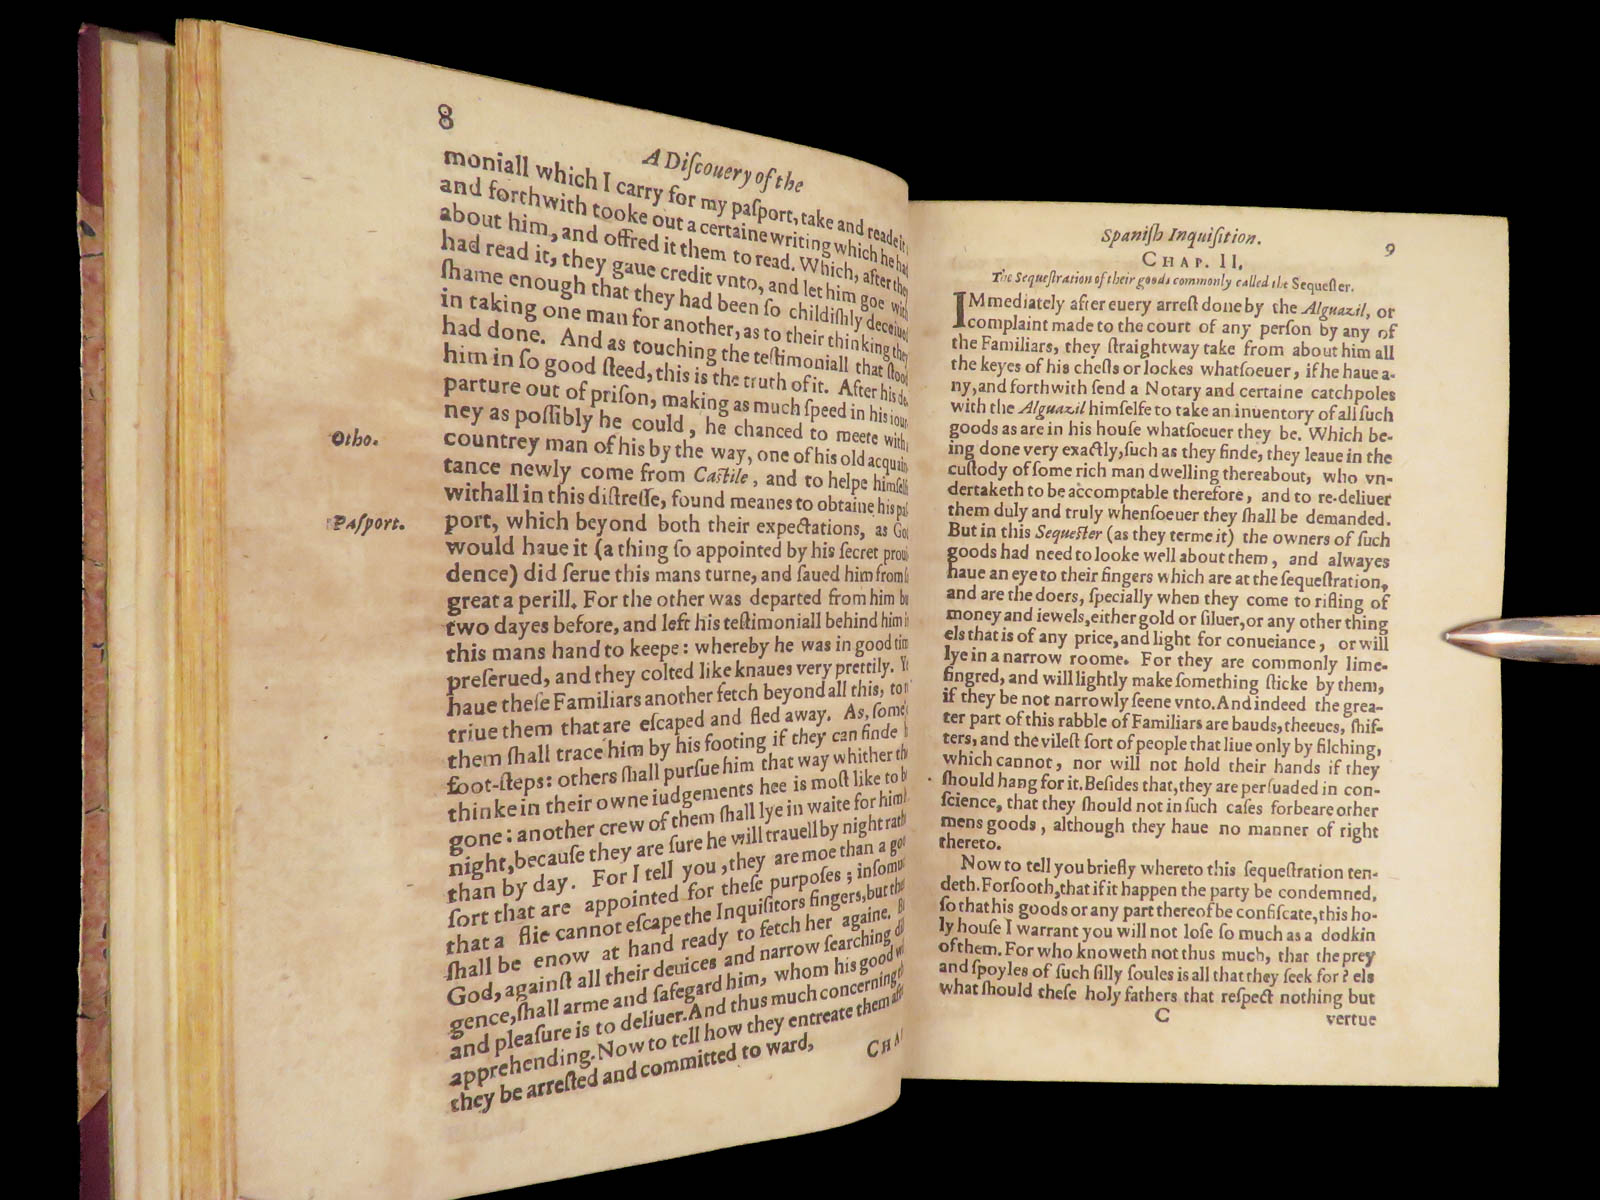 8
A Diſcouery of the
moniall which I carry for my paſport, take and reade it
and forthwith tooke out a certaine writing which he had
about him, and offred it them to read. Which, after they
had read it, they gaue credit vnto, and let him goe with
ſhame enough that they had been ſo childiſhly deceiued
in taking one man for another, as to their thinking they
had done. And as touching the teſtimoniall that ſtood
him in ſo good ſteed, this is the truth of it. After his de-
parture out of priſon, making as much ſpeed in his iour
ney as poſſibly he could, he chanced to meete with
Otho.
countrey man of his by the way, one of his old acquain
tance newly come from Caſtile, and to helpe himſelfe
withall in this diſtreſſe, found meanes to obtaine his paſ
Paſport.
port, which beyond both their expectations, as God
would haue it (a thing ſo appointed by his ſecret proui
dence) did ſerue this mans turne, and ſaued him from ſo
great a perill. For the other was departed from him but
two dayes before, and left his teſtimoniall behind him in
this mans hand to keepe: whereby he was in good time
preſerued, and they colted like knaues very prettily. Yet
haue theſe Familiars another fetch beyond all this, to re
triue them that are eſcaped and fled away. As, ſome of
them ſhall trace him by his footing if they can finde his
foot-ſteps: others ſhall purſue him that way whither they
thinke in their owne iudgements hee is moſt like to be
gone: another crew of them ſhall lye in waite for him by
night, becauſe they are ſure he will trauell by night rather
than by day. For I tell you, they are moe than a good
ſort that are appointed for theſe purpoſes; inſomuch
that a flie cannot eſcape the Inquiſitors fingers, but there
ſhall be enow at hand ready to fetch her againe. But
God, againſt all their deuices and narrow ſearching dili
gence, ſhall arme and ſafegard him, whom his good will
and pleaſure is to deliuer. And thus much concerning the
apprehending. Now to tell how they entreate them after
they be arreſted and committed to ward,
CHA
Spaniſh Inquiſition.
9
CHAP. II.
The Sequeſtration of their goods commonly called the Sequeſter.
IMmediately after euery arreſt done by the Alguazil, or
complaint made to the court of any perſon by any of
the Familiars, they ſtraightway take from about him all
the keyes of his cheſts or lockes whatſoeuer, if he haue a-
ny, and forthwith ſend a Notary and certaine catchpoles
with the Alguazil himſelfe to take an inuentory of all ſuch
goods as are in his houſe whatſoeuer they be. Which be-
ing done very exactly, ſuch as they finde, they leaue in the
cuſtody of ſome rich man dwelling thereabout, who vn-
dertaketh to be accomptable therefore, and to re-deliuer
them duly and truly whenſoeuer they ſhall be demanded.
But in this Sequeſter (as they terme it) the owners of ſuch
goods had need to looke well about them, and alwayes
haue an eye to their fingers which are at the ſequeſtration,
and are the doers, ſpecially when they come to rifling of
money and iewels, either gold or ſiluer, or any other thing
els that is of any price, and light for conueiance, or will
lye in a narrow roome. For they are commonly lime-
fingred, and will lightly make ſomething ſticke by them,
if they be not narrowly ſeene vnto. And indeed the grea-
ter part of this rabble of Familiars are bauds, theeues, ſhif-
ters, and the vileſt ſort of people that liue only by filching,
which cannot, nor will not hold their hands if they
ſhould hang for it. Beſides that, they are perſuaded in con-
ſcience, that they ſhould not in ſuch caſes forbeare other
mens goods, although they haue no manner of right
thereto.
Now to tell you briefly whereto this ſequeſtration ten-
deth. Forſooth, that if it happen the party be condemned,
ſo that his goods or any part thereof be confiſcate, this ho-
ly houſe I warrant you will not loſe ſo much as a dodkin
of them. For who knoweth not thus much, that the prey
and ſpoyles of ſuch ſilly ſoules is all that they ſeek for? els
what ſhould theſe holy fathers that reſpect nothing but
C
vertue